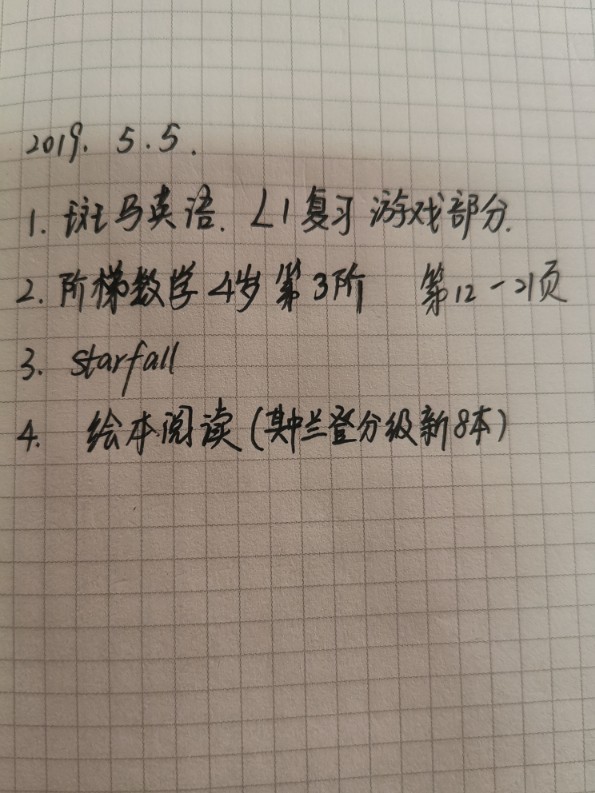 2019. 5.5.
1. 斑马英语. L1复习 游戏部分.
2. 阶梯数学 4岁 第3阶 第12-21页
3. starfall
4. 绘本阅读(其中兰登分级新8本)